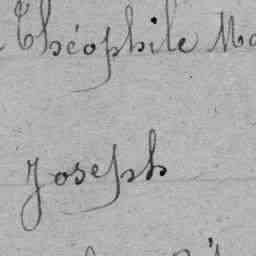 Théophile
Joseph